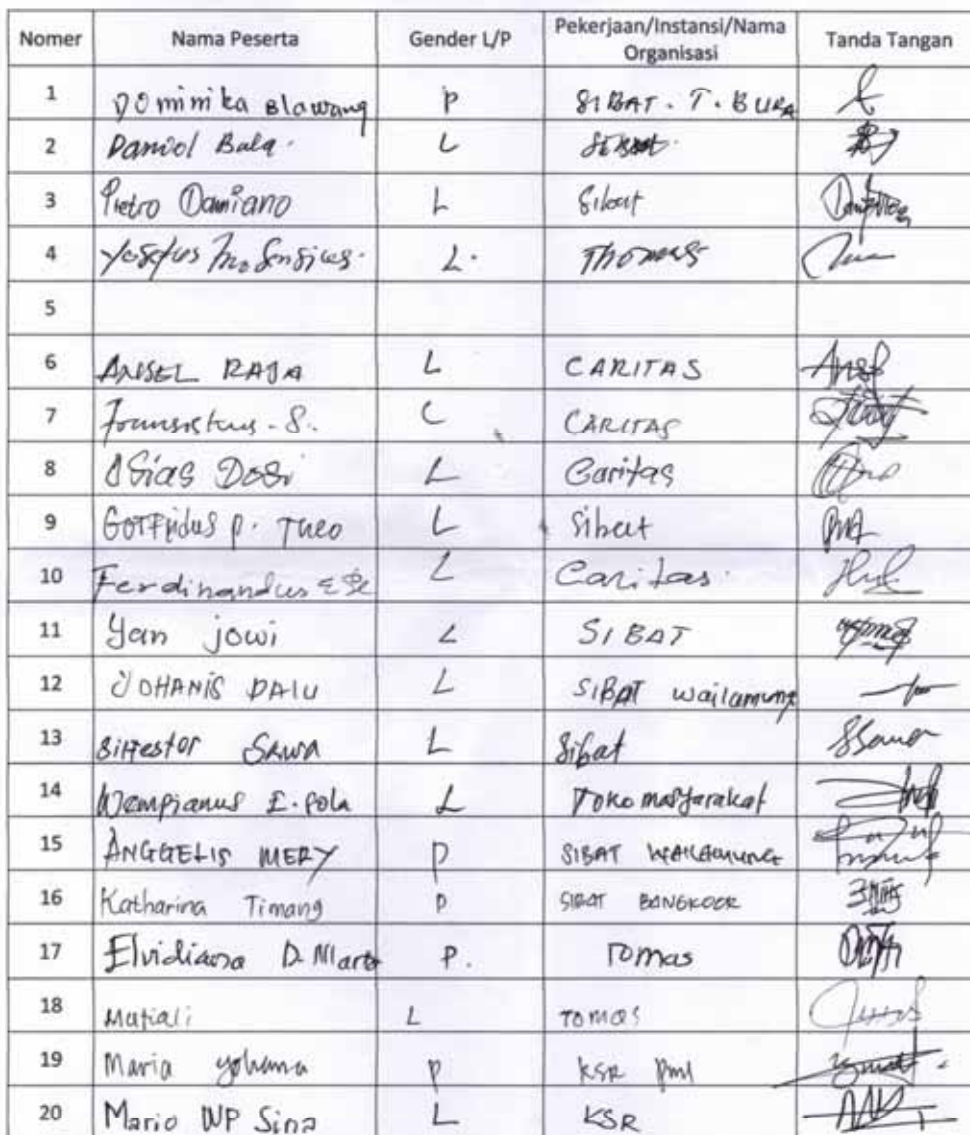 Nomer Nama Peserta Gender L/P Pekerjaan/Instansi/Nama Organisasi Tanda Tangan
1 Dominika Blawang P SIBAT. T. BURA
2 Daniol Bala. L
3 Pietro Damiano L Sibat
4 L. Thomas
5
6 ANSEL RAJA L CARITAS
7 Fransiskus. S. L CARITAS
8 Dosi L Caritas
9 GOTFridus p. Theo L Sibat
10 Ferdinandus L Caritas.
11 Yan jowi L SIBAT
12 JOHANIS DALU L SIBAT wailamung
13 Silfestor Sawa L Sibat
14 Wempianus E. Pola L Toko masyarakat
15 ANGGELIS MERY P SIBAT WAILAMUNG
16 Katharina Timang P SIBAT BANGKOOR
17 Elvidiana D. Marta P. Tomas
18 Mutiali L TOMAS
19 Maria yohana P KSR PMI
20 Mario WP Sina L KSR